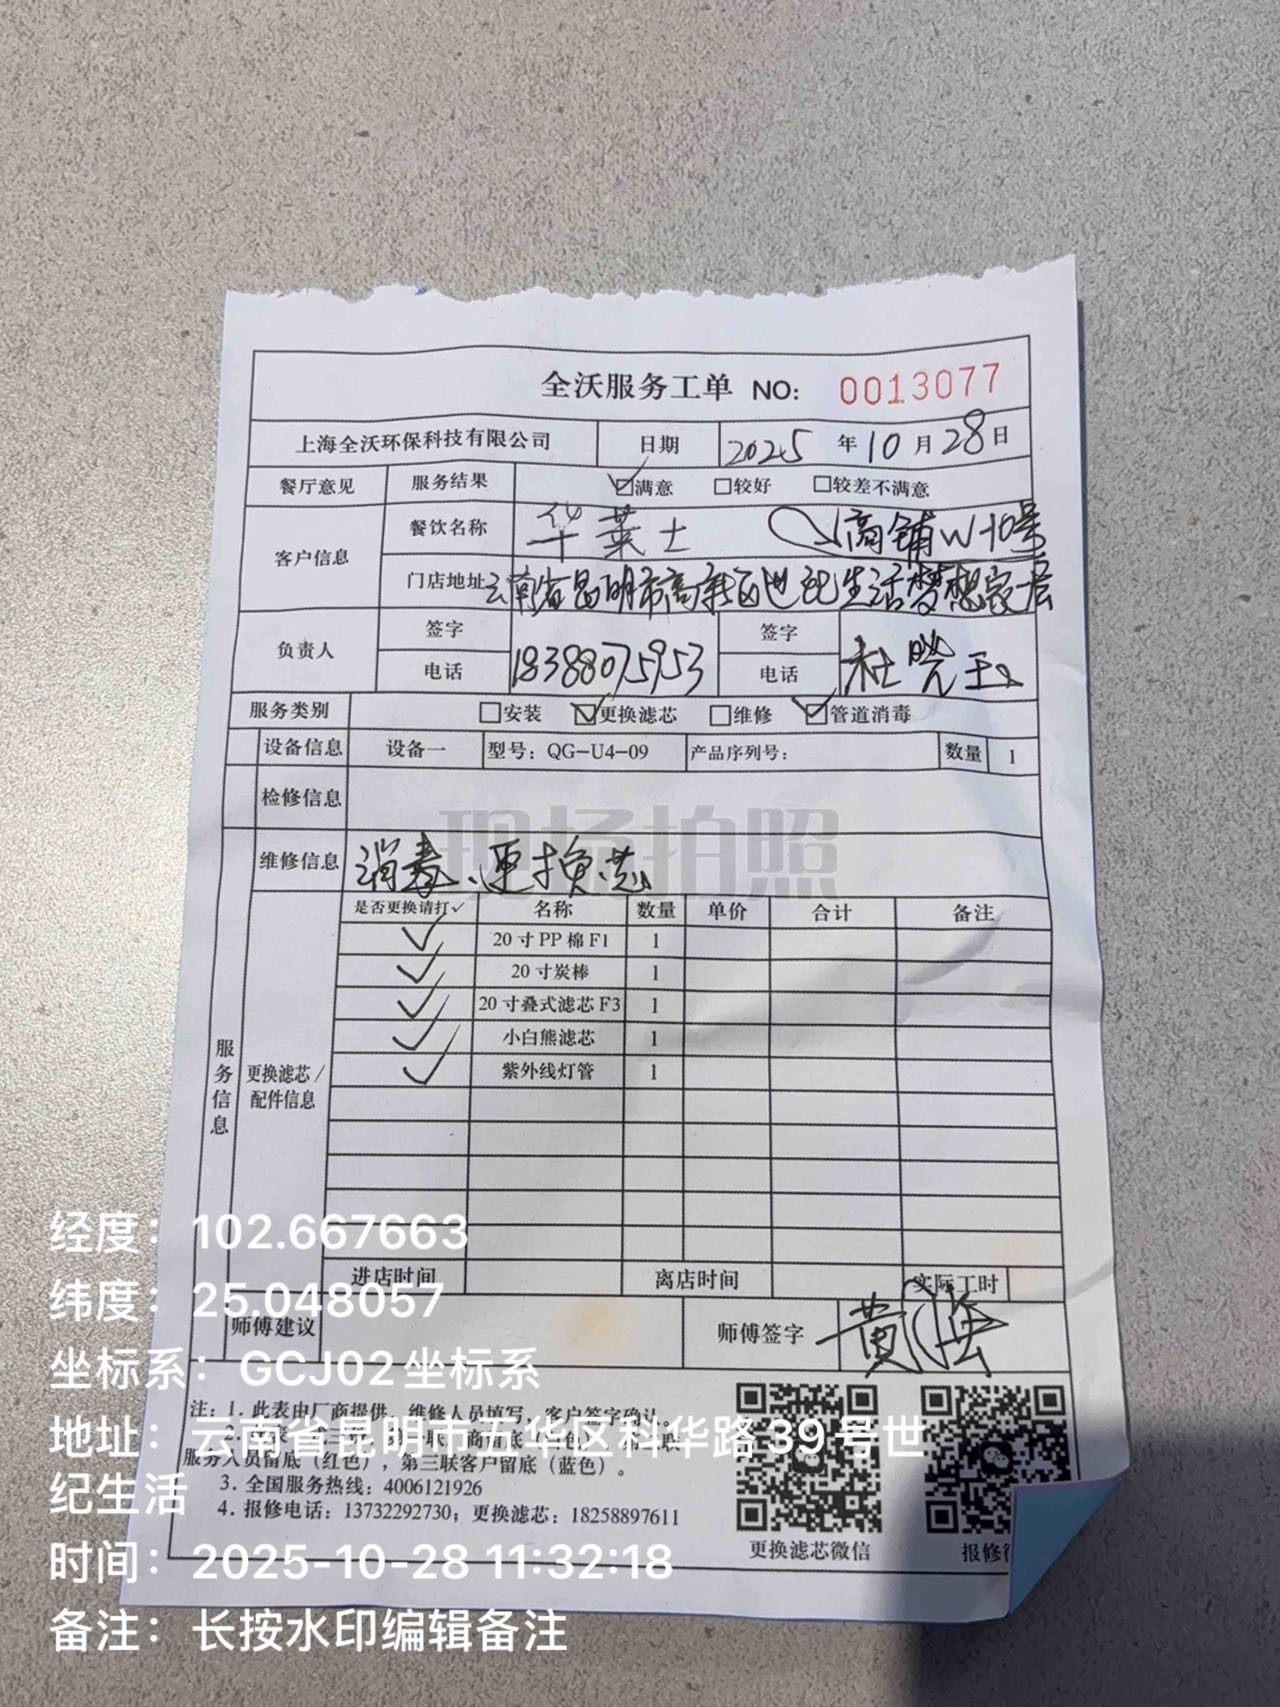 全沃服务工单 NO: 0013077
上海全沃环保科技有限公司 日期 2025 年 10 月 28 日
餐厅意见 服务结果 ☑满意 □较好 □较差不满意
客户信息 餐饮名称 华莱士 商铺W-10号
门店地址 云南省昆明市高新区世纪生活梦想家一层
负责人 签字 签字
电话 18388075953 电话 杜晓玉
服务类别 □安装 ☑更换滤芯 □维修 ☑管道消毒
设备信息 设备一 型号：QG-U4-09 产品序列号： 数量 1
检修信息
现场拍照
维修信息 消毒、更换芯
是否更换请打✓ 名称 数量 单价 合计 备注
✓ 20寸PP棉F1 1
✓ 20寸炭棒 1
✓ 20寸叠式滤芯F3 1
✓ 小白熊滤芯 1
✓ 紫外线灯管 1
服务信息
更换滤芯/
配件信息
进店时间 离店时间 实际工时
师傅建议 师傅签字 黄海
注：1. 此表由厂商提供，维修人员填写，客户签字确认。
服务人员留底（红色），第三联客户留底（蓝色）。
3. 全国服务热线：4006121926
4. 报修电话：13732292730；更换滤芯：18258897611
更换滤芯微信 报修
经度：102.667663
纬度：25.048057
坐标系：GCJ02坐标系
地址：云南省昆明市五华区科华路39号世
纪生活
时间：2025-10-28 11:32:18
备注：长按水印编辑备注